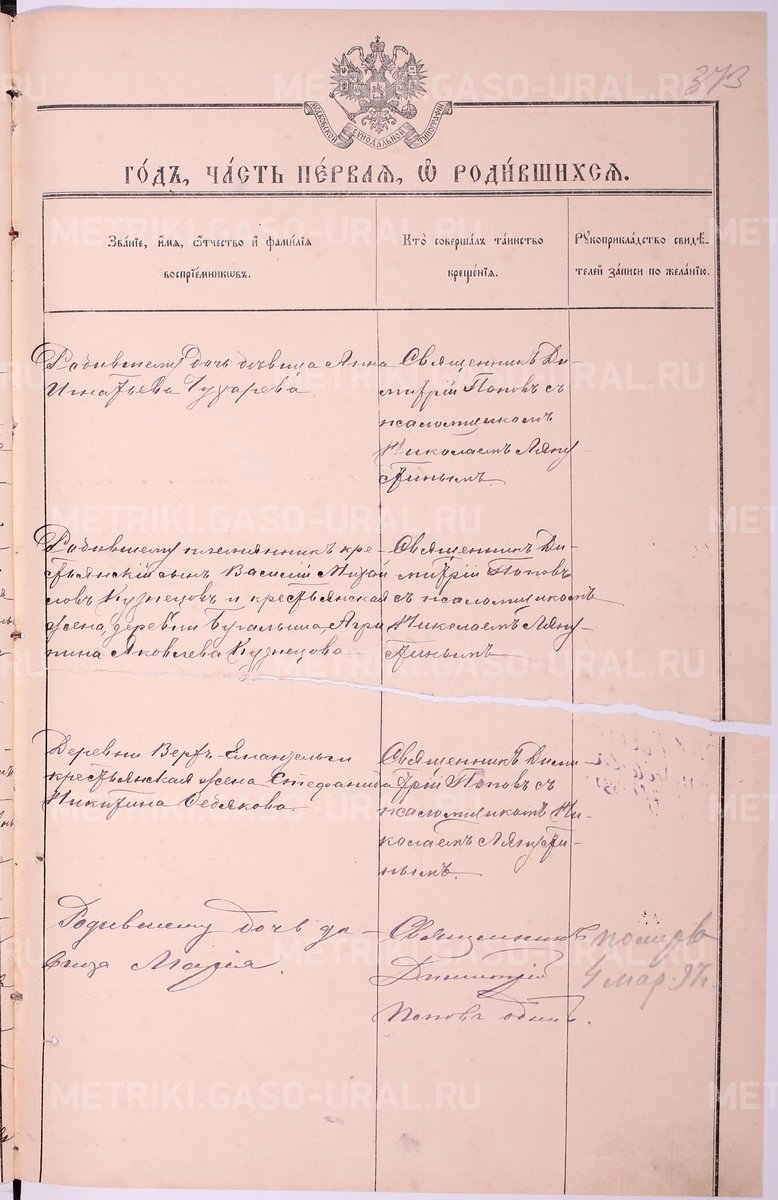 373
МОСКОВСКОЙ СѴНОДАЛЬНОЙ ТИПОГРАФІИ
ГО́ДЪ, ЧА́СТЬ ПЕ́РВАѦ, Ѡ҆ РОДИ́ВШИХСѦ.
Зва́ніе, и҆́мѧ, ѻ҆́тчество и҆ фами́лїѧ
воспрїе́мникѡвъ.
Кто̀ соверша́лъ та́инство
креще́нїѧ.
Рꙋкоприкла́дство свидѣ́-
телей за́писи по жела́нїю.
Родившему дочь дѣвица Анна
Игнатьева Чухарева.
Священникъ Ди-
митрій Поповъ съ
псаломщикомъ
Николаемъ Ляпу-
стинымъ.
Родившему племянникъ кре-
стьянскій сынъ Василій Михай
ловъ Кузнецовъ и крестьянская
жена деревни Бугалыша Агри
пина Яковлева Кузнецова
Священникъ Ди-
митрій Поповъ
съ псаломщикомъ
Николаемъ Ляпу-
стинымъ
Деревни Верхъ-
крестьянская жена Стефанида
Никитина
Священникъ Дими
трій Поповъ съ
псаломщикомъ Ни-
колаемъ Ляпусти-
нымъ.
Родившему дочь дѣ-
вица Марія.
Священникъ
Димитрій
Поповъ одинъ.
4 мар. 97
METRIKI.GASO-URAL.RU